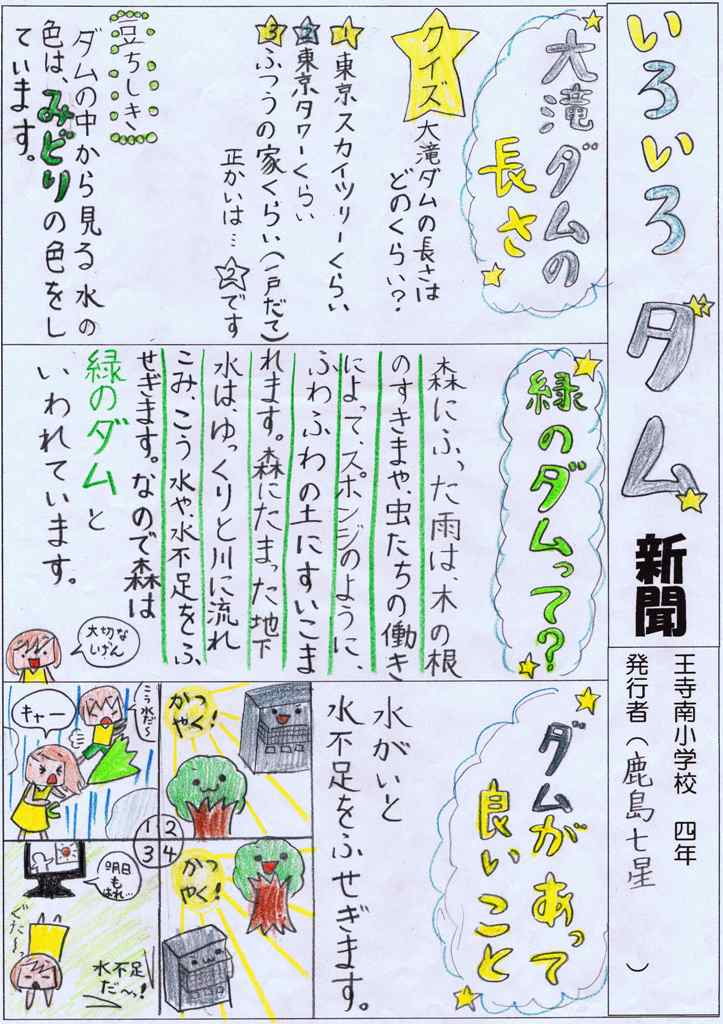 いろいろ
ダム
新聞
王寺南小学校 四年
発行者（鹿島七星 ）
大滝ダムの
長さ
クイズ
大滝ダムの長さは
どのくらい？
1 東京スカイツリーくらい
2 東京タワーくらい
3 ふつうの家くらい（一戸だて）
正かいは… 2 です
豆ちしき
ダムの中から見る水の
色は、みどりの色をし
ています。
緑のダムって？
森にふった雨は、木の根
のすきまや、虫たちの働き
によって、スポンジのように、
ふわふわの土にすいこま
れます。森にたまった地下
水は、ゆっくりと川に流れ
こみ、こう水や、水不足をふ
せぎます。なので森は
緑のダムと
いわれています。
大切な
しげん
ダムがあって
良いこと
水がいと
水不足をふせぎます。
1
こう水だ〜
キャー
2
かつ
やく！
3
明日
も
はれ…
ぐた〜っ
水不足
だ〜っ！
4
かつ
やく！